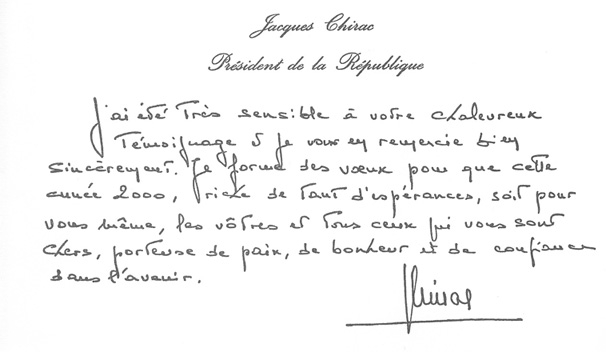 Jacques Chirac
Président de la République
J'ai été Très sensible à votre chaleureux
Témoignage et je vous en remercie bien
sincèrement. Je forme des vœux pour que cette
année 2000, riche de tant d'espérances, soit pour
vous même, les vôtres et tous ceux qui vous sont
chers, porteuse de paix, de bonheur et de confiance
dans l'avenir.
Chirac